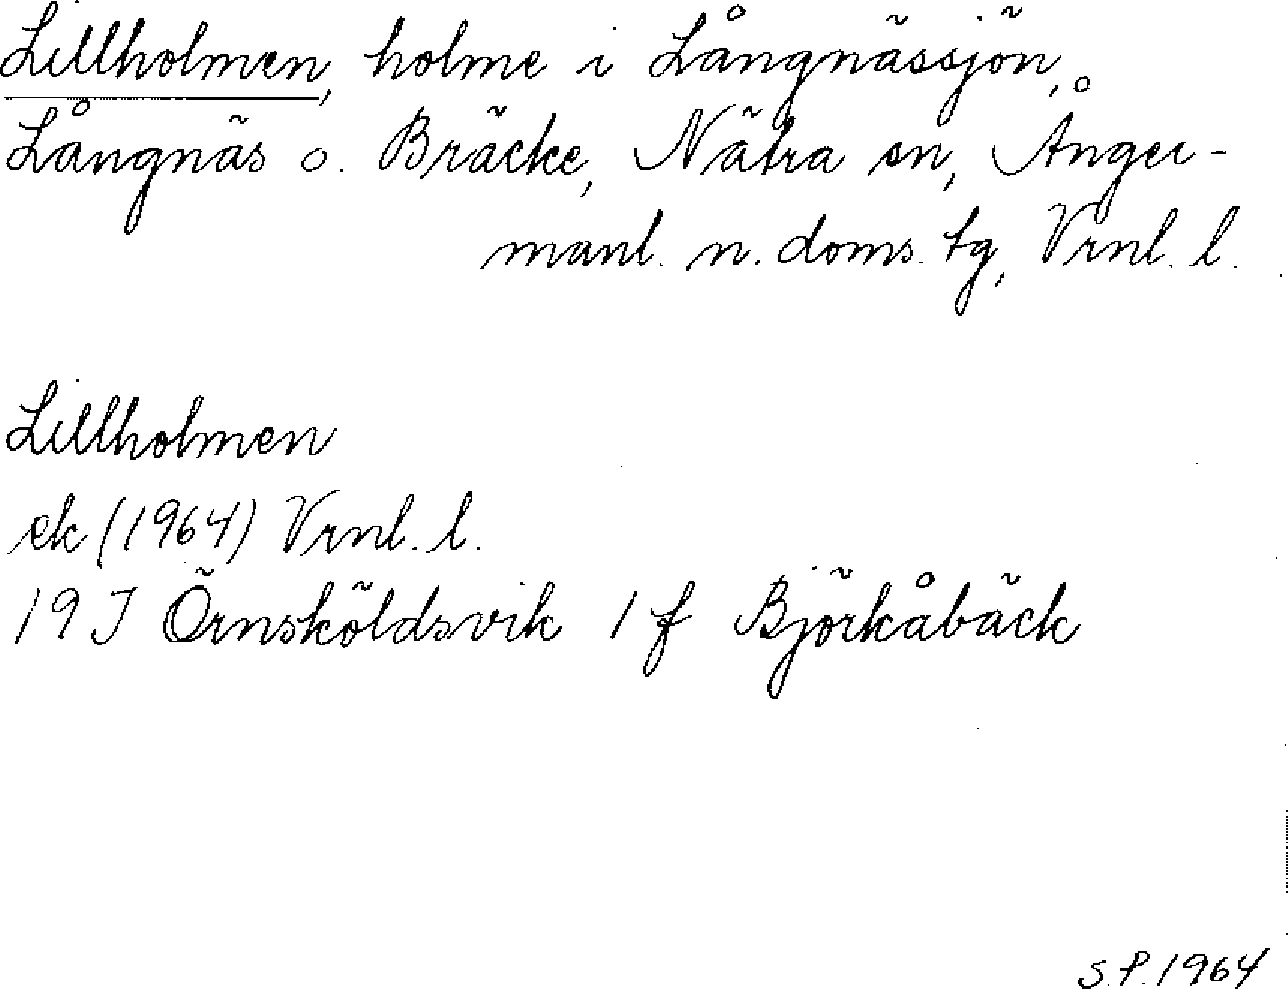 Lillholmen, holme i Långnässjön,
Långnäs o. Bräcke, Nätra sn, Ånger-
manl. n. doms. tg, Vrnl. l.
Lillholmen
ek (1964) Vrnl. l.
19 J Örnsköldsvik 1 f Björkåbäck
S.P. 1964